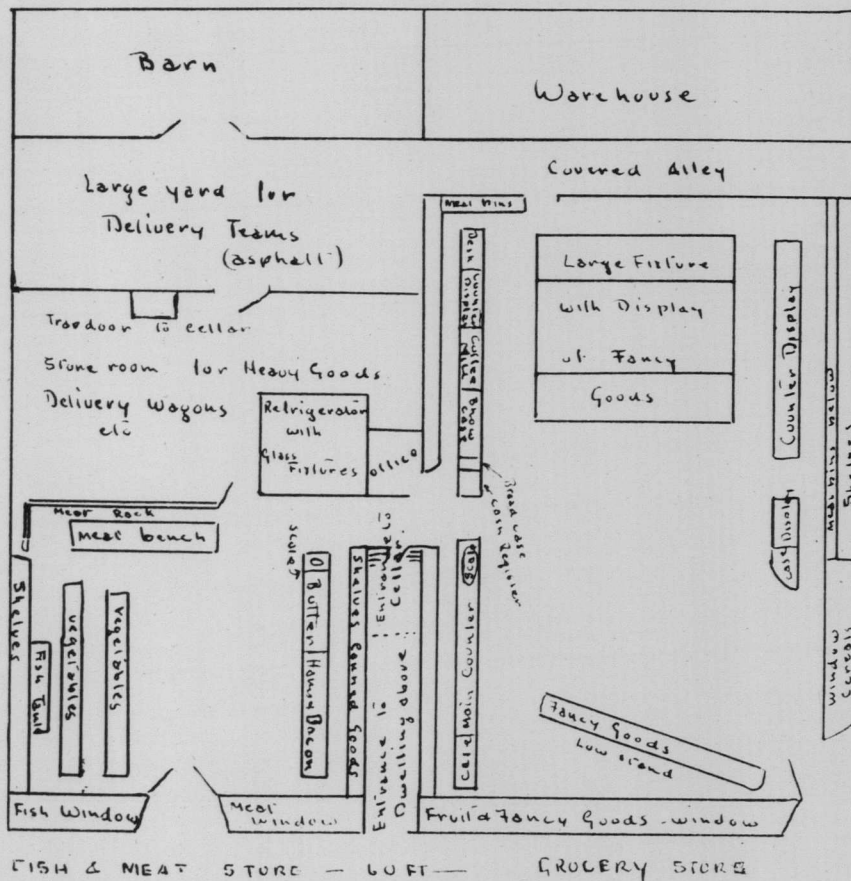 Barn
Warehouse
Covered Alley
Large yard for
Delivery Teams
(asphalt)
Meal bins
Trapdoor to cellar
Store room for Heavy Goods
Delivery Wagons
etc
Refrigerator
with
Glass
Fixtures
office
Desk
Counter
Display
Coffee
Mill
Show
Case
Bread case
Cash Register
Large Fixture
with Display
of Fancy
Goods
Counter Display
Case Display
Meal bins below
Shelves
Window
Cereals
Meat Rack
Meat bench
Shelves
Fish Tank
Vegetables
Vegetables
Scale
Butter
Ham
Bacon
Shelves Canned Goods
Entrance to
Cellar
Entrance to
Dwelling above
Scale
Main Counter
Case
Fancy Goods
Low stand
Fish Window
Meat
Window
Fruit & Fancy Goods - window
FISH & MEAT STORE — 60 FT — GROCERY STORE